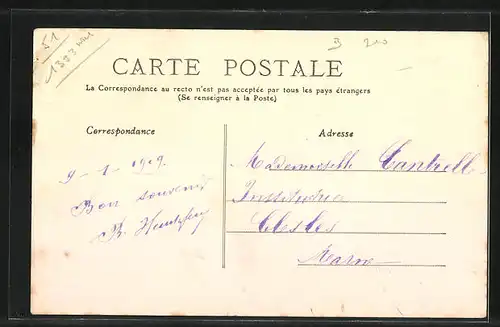 51
1303
B 200
CARTE POSTALE
La Correspondance au recto n'est pas acceptée par tous les pays étrangers
(Se renseigner à la Poste)
Correspondance
Adresse
9-1-1909.
Bon souvenir
Mademoiselle Cantrell
Institutrice
Clesles
Marne